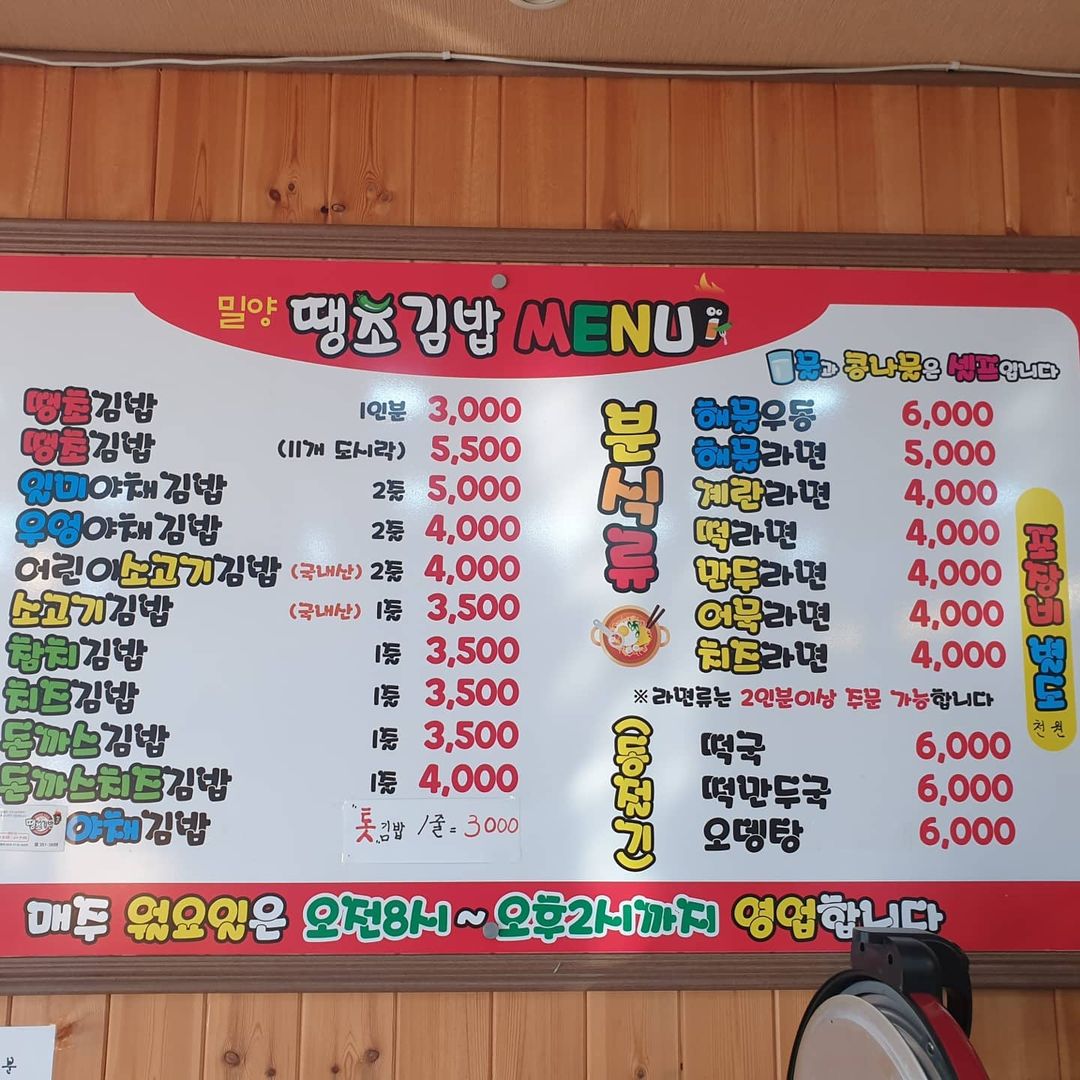 밀양 땡초김밥 MENU
물과 콩나물은 셀프입니다
땡초김밥 1인분 3,000
땡초김밥 (11개 도시락) 5,500
일미야채김밥 2줄 5,000
우엉야채김밥 2줄 4,000
어린이소고기김밥 (국내산) 2줄 4,000
소고기김밥 (국내산) 1줄 3,500
참치김밥 1줄 3,500
치즈김밥 1줄 3,500
돈까스김밥 1줄 3,500
돈까스치즈김밥 1줄 4,000
야채김밥
"톳"김밥 1줄 = 3000
분식류
해물우동 6,000
해물라면 5,000
계란라면 4,000
떡라면 4,000
만두라면 4,000
어묵라면 4,000
치즈라면 4,000
※ 라면류는 2인분이상 주문 가능합니다
(동절기)
떡국 6,000
떡만두국 6,000
오뎅탕 6,000
포장비 별도
천원
매주 월요일은 오전8시~오후2시까지 영업합니다
분